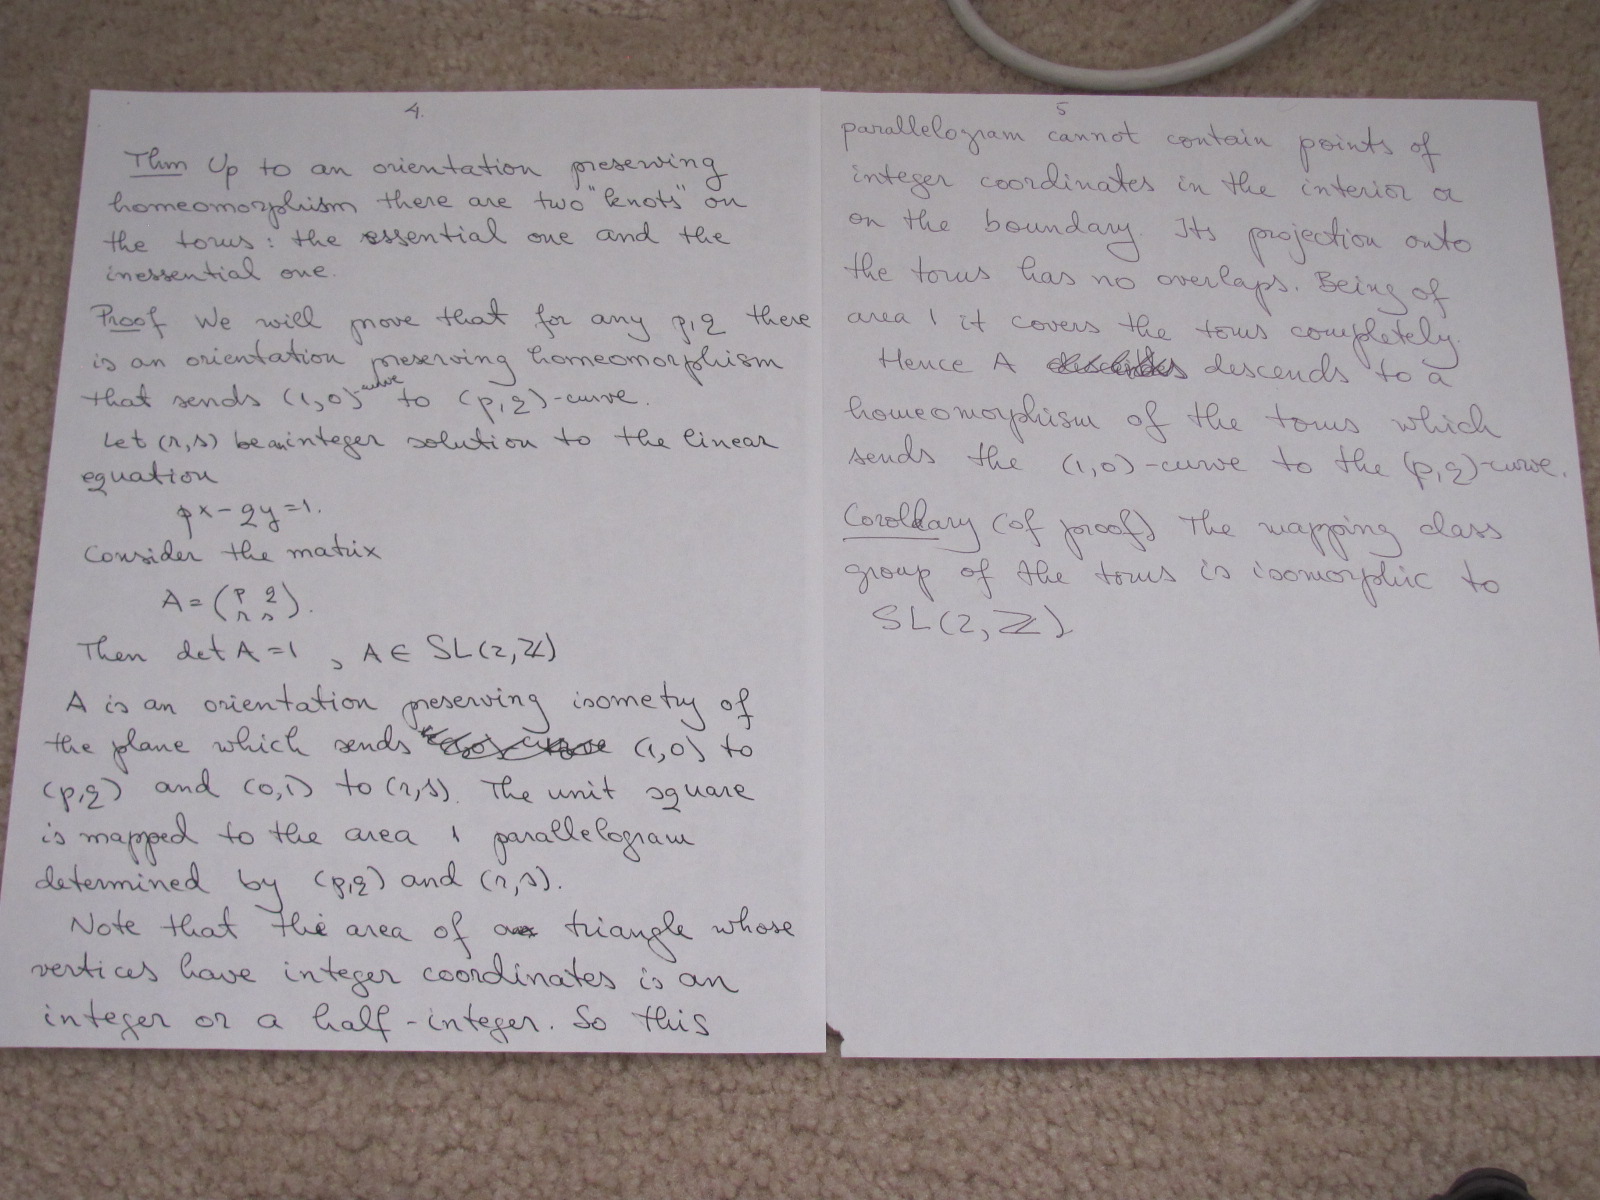 4.
Thm Up to an orientation preserving
homeomorphism there are two "knots" on
the torus: the essential one and the
inessential one.
Proof We will prove that for any p,q there
is an orientation preserving homeomorphism
that sends (1,0)-curve to (p,q)-curve.
Let (r,s) be an integer solution to the linear
equation
px-qy=1.
Consider the matrix
A=(p q
r s).
Then det A=1, A∈ SL(2,ℤ)
A is an orientation preserving isometry of
the plane which sends (1,0) to
(p,q) and (0,1) to (r,s). The unit square
is mapped to the area 1 parallelogram
determined by (p,q) and (r,s).
Note that the area of a triangle whose
vertices have integer coordinates is an
integer or a half-integer. So this
5
parallelogram cannot contain points of
integer coordinates in the interior or
on the boundary. Its projection onto
the torus has no overlaps. Being of
area 1 it covers the torus completely.
Hence A descends to a
homeomorphism of the torus which
sends the (1,0)-curve to the (p,q)-curve.
Corollary (of proof) The mapping class
group of the torus is isomorphic to
SL(2,ℤ)